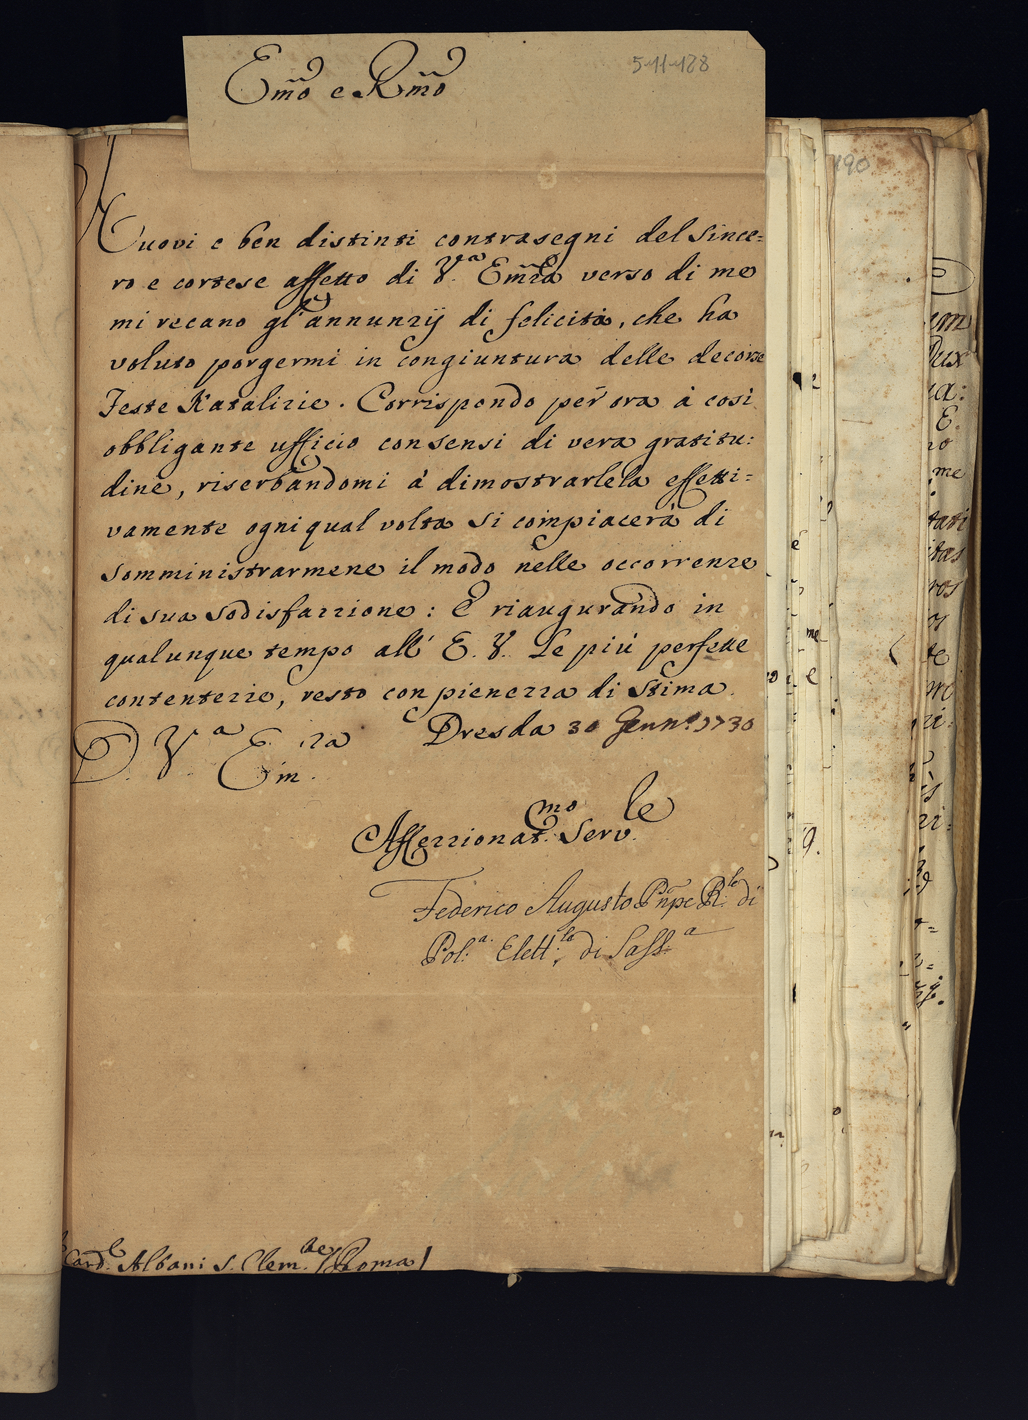 Em̃o e Rm̃o
5-11-188
190
Nuovi e ben distinti contrasegni del Since=
ro e cortese affetto di V.ª Em̃za verso di me
mi recano gl'annunzij di felicità, che ha
voluto porgermi in congiuntura delle decorse
Feste Natalizie. Corrispondo per ora à così
obbligante ufficio con sensi di vera gratitu:
dine, riserbandomi à dimostrarlela effetti=
vamente ogni qual volta si compiacerà di
somministrarmene il modo nelle occorrenze
di sua sodisfazzione: E riaugurando in
qualunque tempo all' E. V. Le più perfette
contentezze, resto con pienezza di Stima.
Dresda 30 Genn.º 1730
D. V.ª Em.za
Affezzionat.mo Serv.le
Federico Augusto Pñpe R.le di
Pol.ª Elett.le di Sass.ª
Card.l Albani S. Clem.te /Roma/